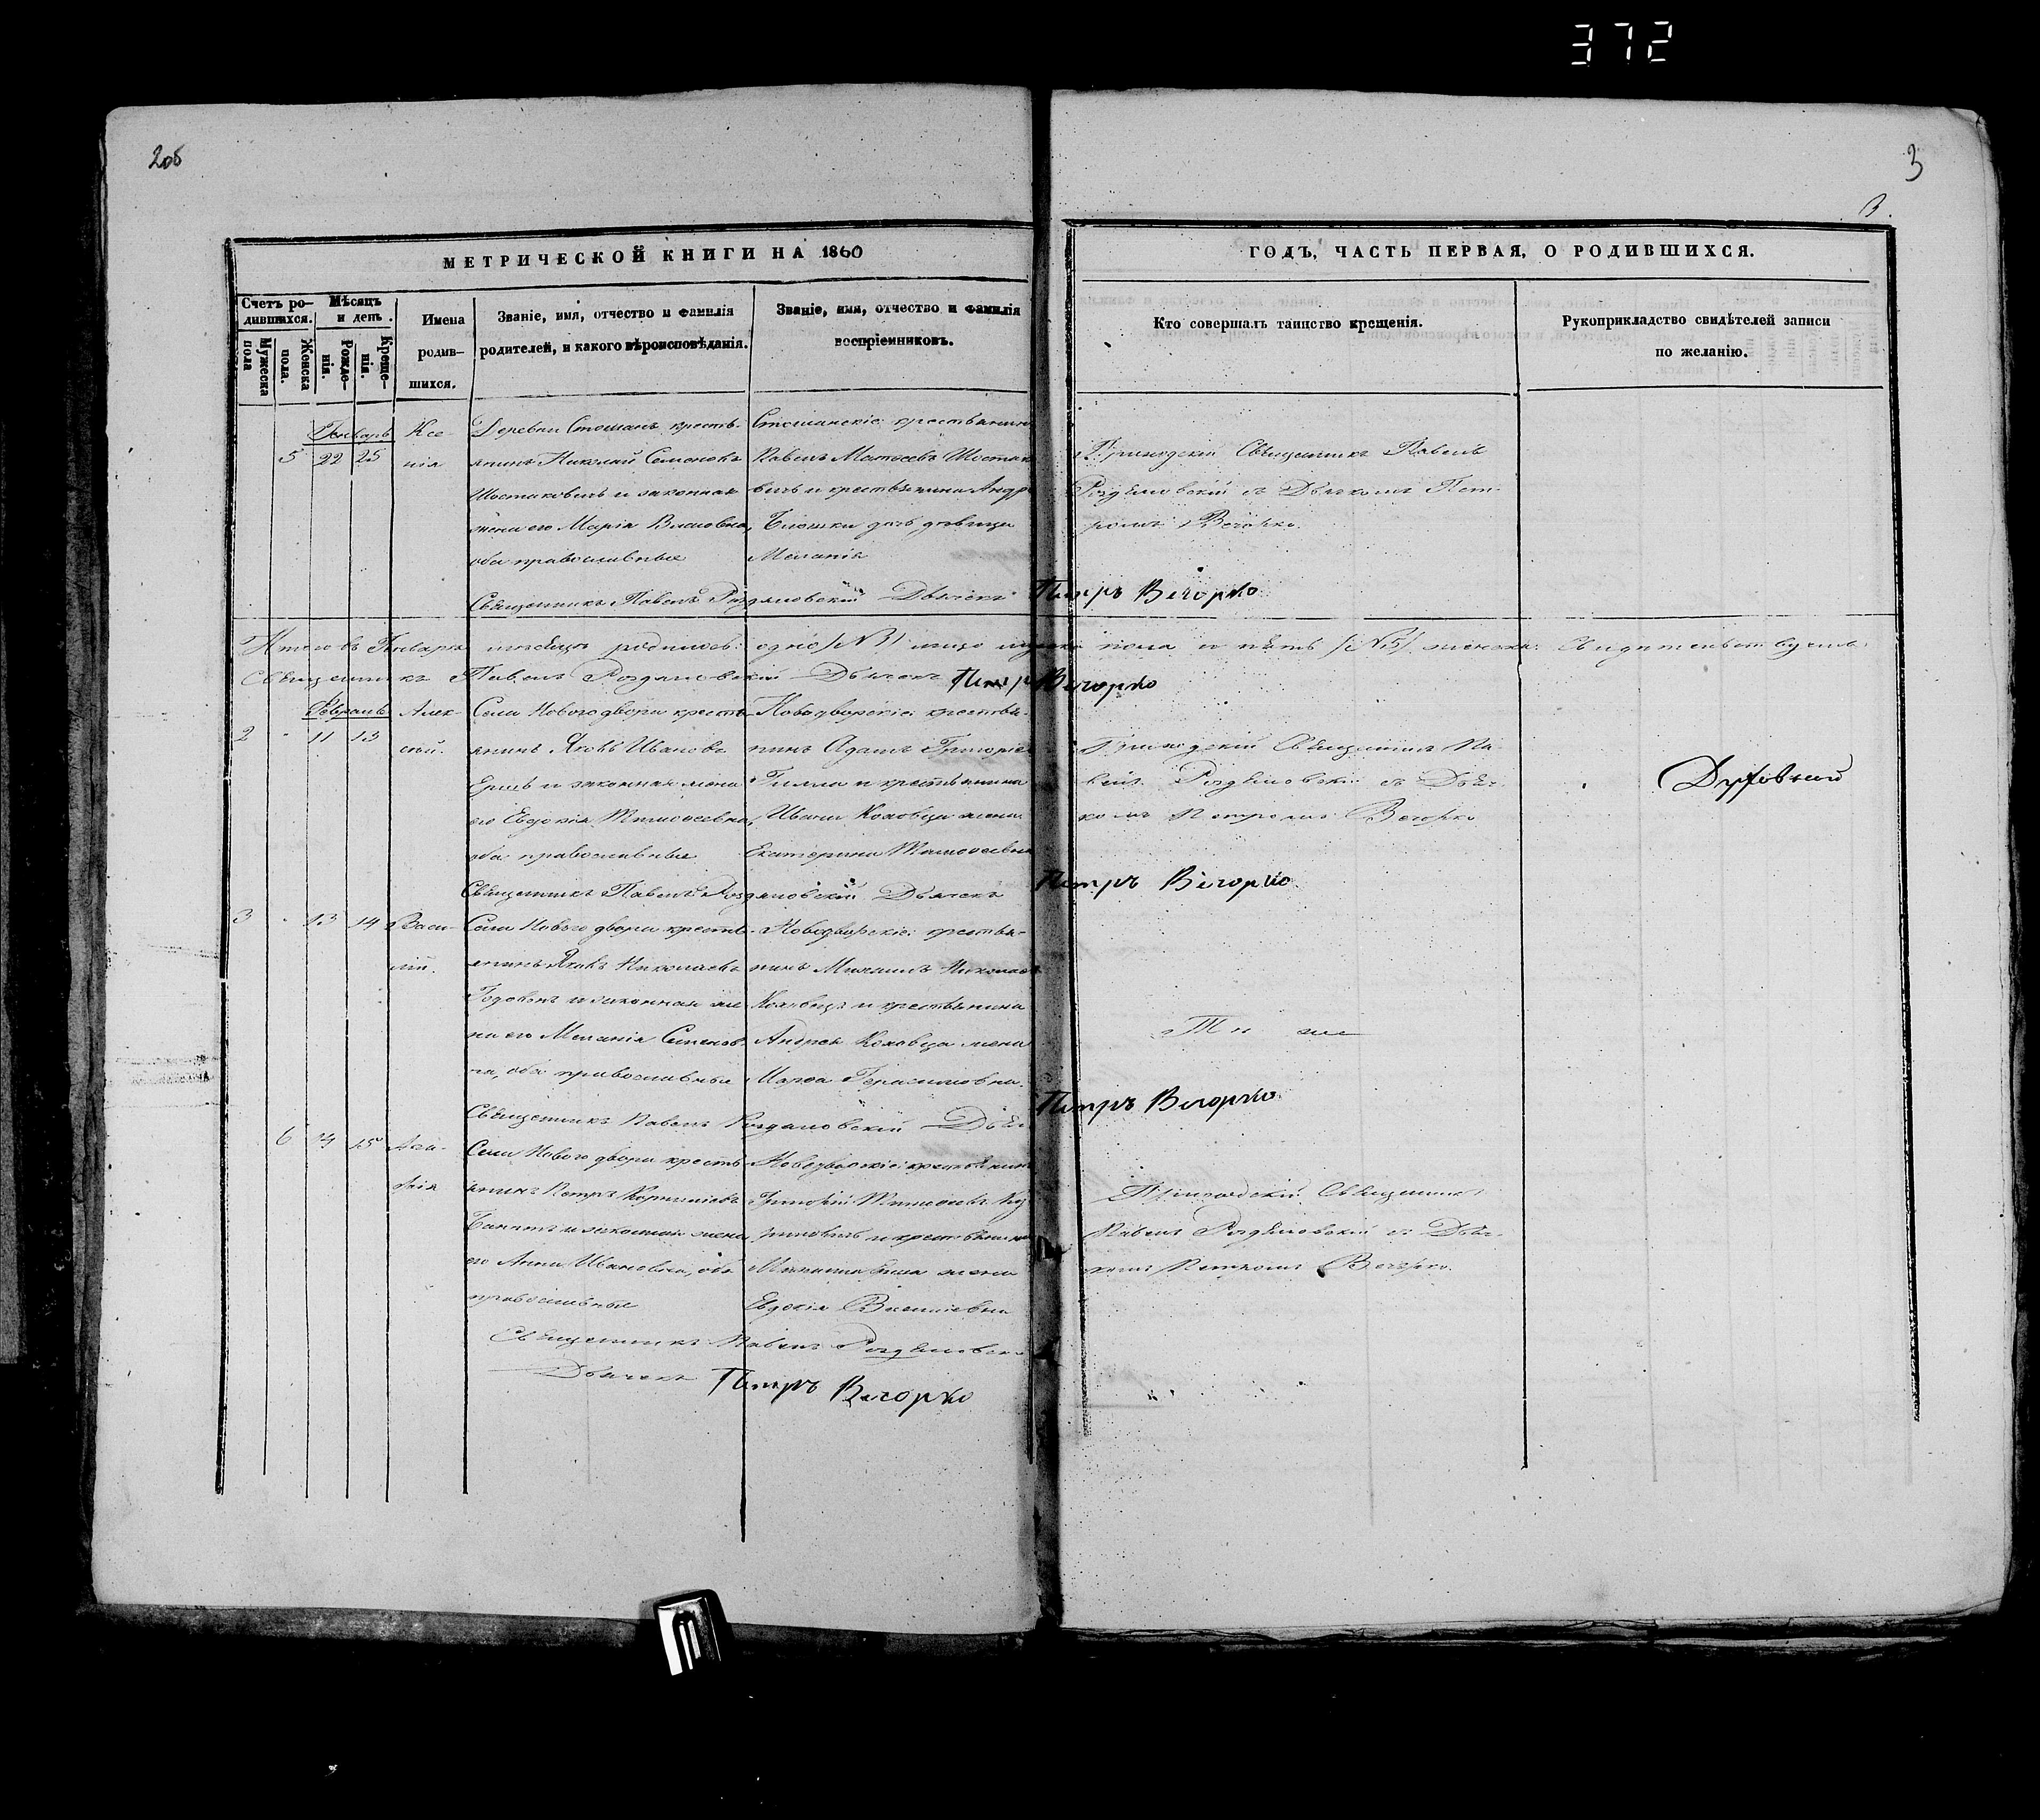 372
2об
3
3.
МЕТРИЧЕСКОЙ КНИГИ НА 1860
ГОДЪ, ЧАСТЬ ПЕРВАЯ, О РОДИВШИХСЯ.
Счетъ ро-
дившихся.
Мужеска пола
Женска пола.
Мѣсяцъ
и день.
Рожде-
нія.
Креще-
нія.
Имена
родив-
шихся.
Званіе, имя, отчество и фамилія
родителей, и какого вѣроисповѣданія.
Званіе, имя, отчество и фамилія
воспріемниковъ.
Кто совершалъ таинство крещенія.
Рукоприкладство свидѣтелей записи
по желанію.
Генварь
5 22 25
Ксе-
нія
Деревни Стошанъ кресть-
янинъ Николай Семеновъ
Шостаковичъ и законная
жена его Марія Власовна,
оба православные
Стошанскіе: крестьянинъ
Павелъ Матѳеевъ Шостако
вичъ и крестьянина Андр
дочь дѣвица
Меланія
Приходскій Священникъ Павелъ
Роздяловскій съ Дьячкомъ Пет-
ромъ Вечорко.
Священникъ Павелъ Роздяловскій Дьячекъ Петръ Вечорко
Итого въ Генварѣ мѣсяцѣ родилось: одно /№1/ лицо мужеска пола и пять /№5/ женска:
Священникъ Павелъ Роздяловскій Дьячекъ Петръ Вечорко
Февраль
2 11 13
Алек-
сѣй.
Села Нового двора кресть-
янинъ Яковъ Ивановъ
Ершъ и законная жена
его Евдокія Тимоѳеевна,
оба православные
Новодворскіе: крестья-
нинъ Адамъ Григорьев
и крестьянина
Ивана Коловца жена
Екатерина Тимоѳеевна
Приходскій Священникъ Па-
велъ Роздяловскій съ Дьяч-
комъ Петромъ Вечорко
Духовный
Священникъ Павелъ Роздяловскій Дьячекъ Петръ Вечорко.
3 13 14
Васи-
лій.
Села Нового двора кресть-
янинъ Яковъ Николаевъ
и законная же
на его Меланія Семенов
на, оба православные
Новодворскіе: крестья-
нинъ Михаилъ Николаев
Коловецъ и крестьянина
Андрея Коловца жена
Марѳа Герасимовна.
Тѣ же
Священникъ Павелъ Роздяловскій Дьяч Петръ Вечорко
6 14 15
Ага-
фія
Села Нового двора кресть-
янинъ Петръ Корнилівъ
и законная жена
его Анна Ивановна, оба
православные
Новодворскіе: крестьянинъ
Григорій Тимоѳеевъ
и крестьянина
жена
Евдокія Васильевна
Приходскій Священникъ
Павелъ Роздяловскій съ Дьяч-
комъ Петромъ Вечорко.
Священникъ Павелъ Роздяловскі
Дьячекъ Петръ Вечорко